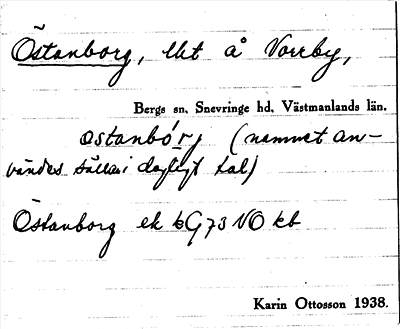 Östanborg, lht å Vorrby,
Bergs sn, Snevringe hd, Västmanlands län.
ostanbórj (namnet an-
vändes sällan i dagligt tal)
Östanborg ek bG73NO kb
Karin Ottosson 1938.